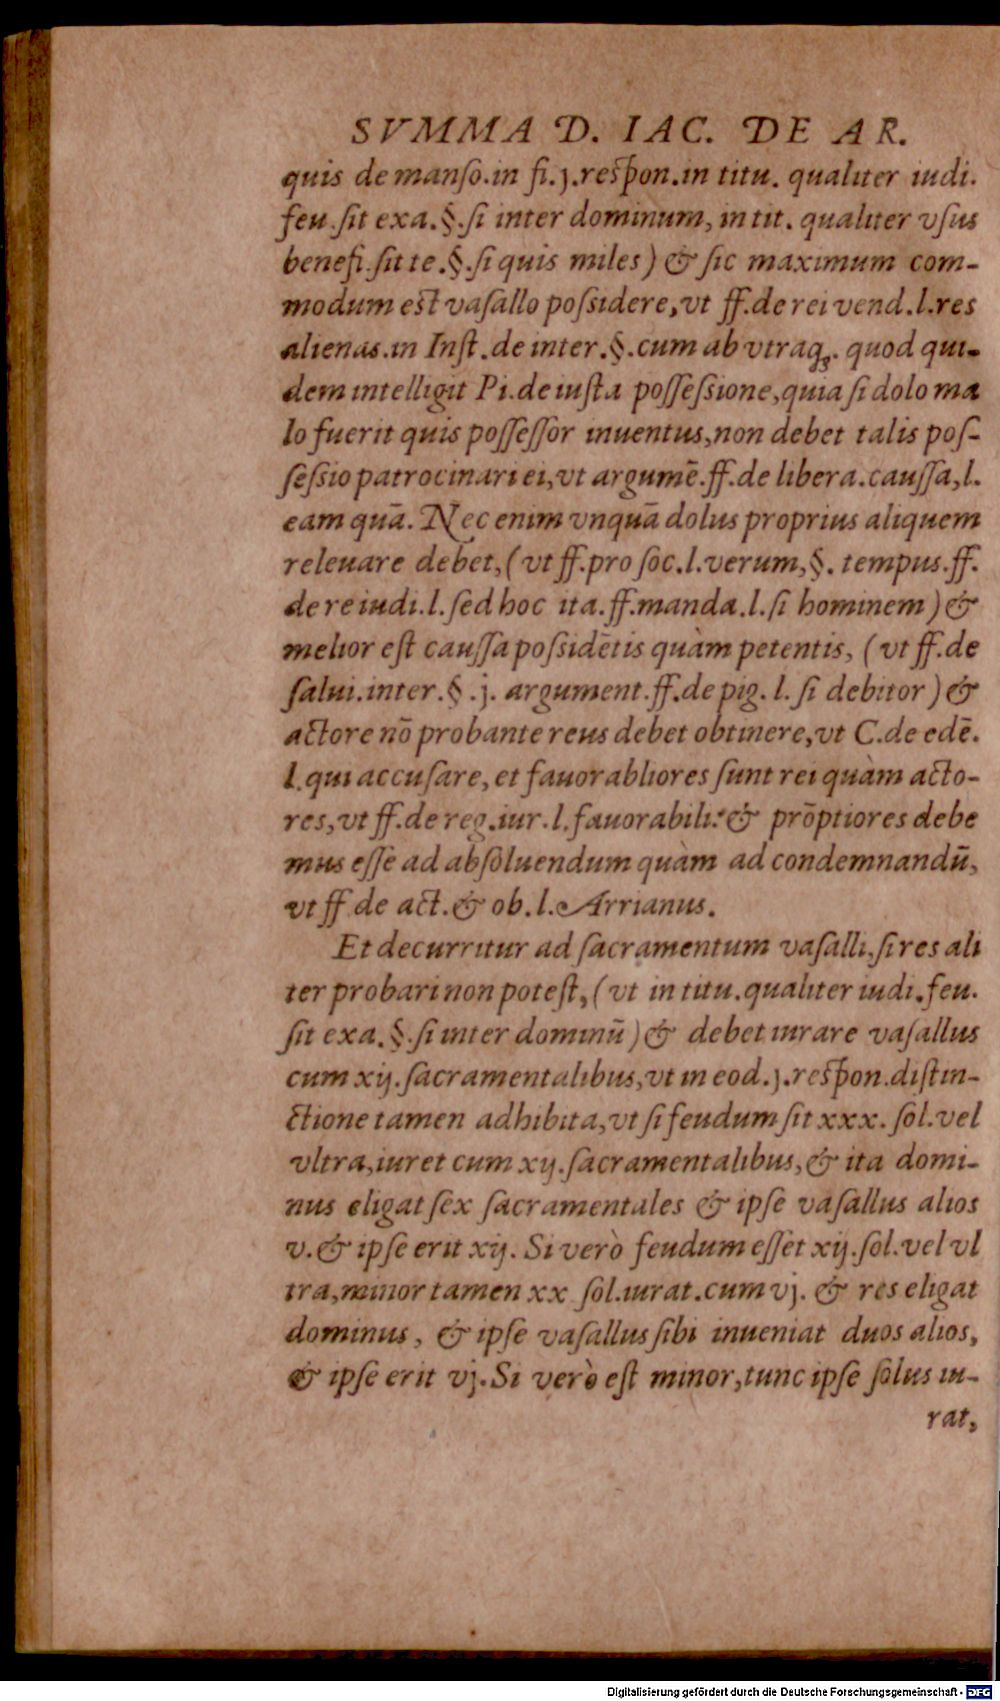 SVMMA D. IAC. DE AR.
quis de manſo.in fi.j.reſpon.in titu. qualiter iudi.
feu.ſit exa.§.ſi inter dominum, in tit. qualiter vſus
benefi.ſit te.§.ſi quis miles) & ſic maximum com-
modum eſt vaſallo poſsidere,vt ff.de rei vend.l.res
alienas.in Inſt.de inter.§.cum ab vtraq;. quod qui-
dem intelligit Pi.de iuſta poſſeſsione,quia ſi dolo ma
lo fuerit quis poſſeſſor inuentus,non debet talis poſ-
ſeſsio patrocinari ei,vt argumē.ff.de libera.cauſſa,l.
eam quā. Nec enim vnquā dolus proprius aliquem
releuare debet,(vt ff.pro ſoc.l.verum,§. tempus.ff.
de re iudi.l.ſed hoc ita.ff.manda.l.ſi hominem)&
melior eſt cauſſa poſsidētis quàm petentis, (vt ff.de
ſalui.inter.§.j. argument.ff.de pig. l. ſi debitor)&
actore nō probante reus debet obtinere,vt C.de edē.
l.qui accuſare, et fauorabliores ſunt rei quàm acto-
res,vt ff.de reg.iur.l.fauorabili:& prōptiores debe
mus eſſe ad abſoluendum quàm ad condemnandū,
vt ff de act.& ob.l.Arrianus.
Et decurritur ad ſacramentum vaſalli,ſi res ali
ter probari non poteſt,(vt in titu.qualiter iudi.feu.
ſit exa.§.ſi inter dominū)& debet iurare vaſallus
cum xij.ſacramentalibus,vt in eod.j.reſpon.diſtin-
ctione tamen adhibita,vt ſi feudum ſit xxx. ſol.vel
vltra,iuret cum xij.ſacramentalibus,& ita domi-
nus eligat ſex ſacramentales & ipſe vaſallus alios
v.& ipſe erit xij. Si verò feudum eſſet xij.ſol.vel vl
tra,minor tamen xx ſol.iurat.cum vj. & res eligat
dominus, & ipſe vaſallus ſibi inueniat duos alios,
& ipſe erit vj.Si verò eſt minor,tunc ipſe ſolus iu-
rat,
Digitalisierung gefördert durch die Deutsche Forschungsgemeinschaft - DFG